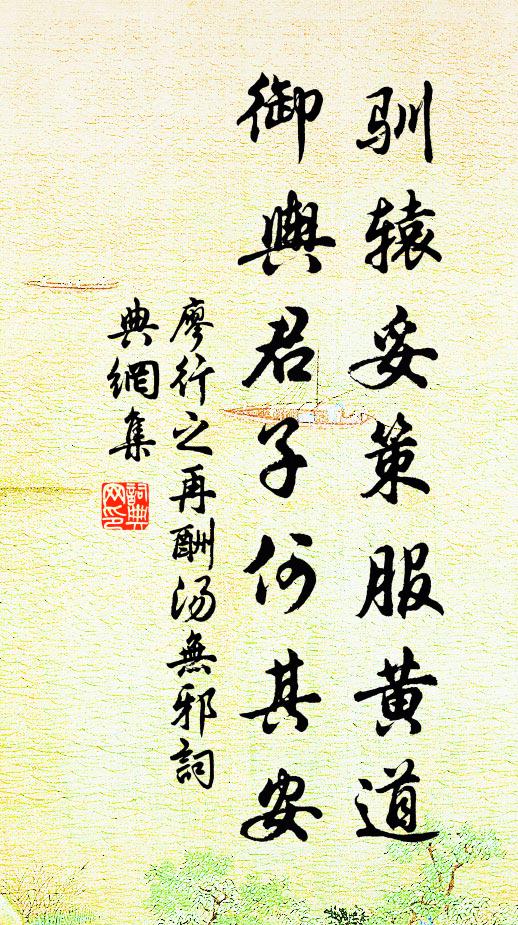 驯辕妥策服黄道
御輿君子何其安
廖行之再酬汤無邪詞
典網集
詞典
网印